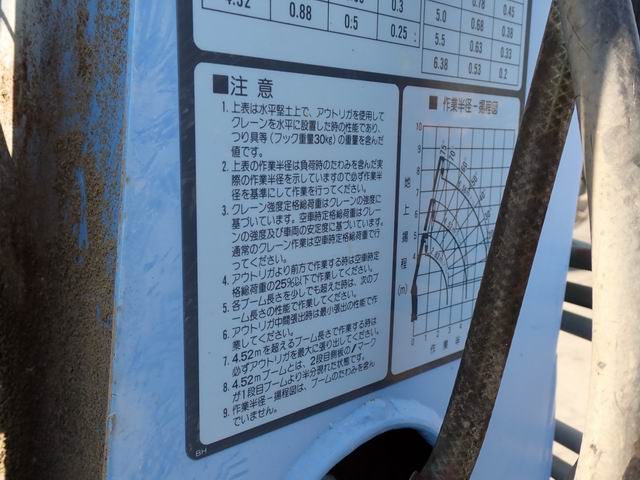 4.52 0.88 0.5 0.25
0.3
0.78 0.45
5.0 0.68 0.38
5.5 0.63 0.33
6.38 0.53 0.2
■注 意
1. 上表は水平堅土上で、アウトリガを使用して
クレーンを水平に設置した時の性能であり、
つり具等(フック重量30kg)の重量を含んだ
値です。
2. 上表の作業半径は負荷時のたわみを含んだ実
際の作業半径を示していますので必ず作業半
径を基準にして作業を行ってください。
3. クレーン強度定格総荷重はクレーンの強度に
基づいています。空車時定格総荷重はクレー
ンの強度及び車両の安定度に基づいています。
通常のクレーン作業は空車時定格総荷重で行
ってください。
4. アウトリガより前方で作業する時は空車時定
格総荷重の25%以下で作業してください。
5. 各ブーム長さを少しでも超えた時は、次のブ
ーム長さの性能で作業してください。
6. アウトリガ中間張出時は最小張出の性能で作
業してください。
7. 4.52mを超えるブーム長さで作業する時は
必ずアウトリガを最大に張り出してください。
8. 4.52mブームとは、2段目側板の/マーク
が1段目ブームより半分現れた状態です。
9. 作業半径-揚程図は、ブームのたわみを含ん
でいません。
BH
■ 作業半径-揚程図
10
9
8
7
6
5
4
地上揚程(m)
75
70
0 1 2 3 4
作 業 半